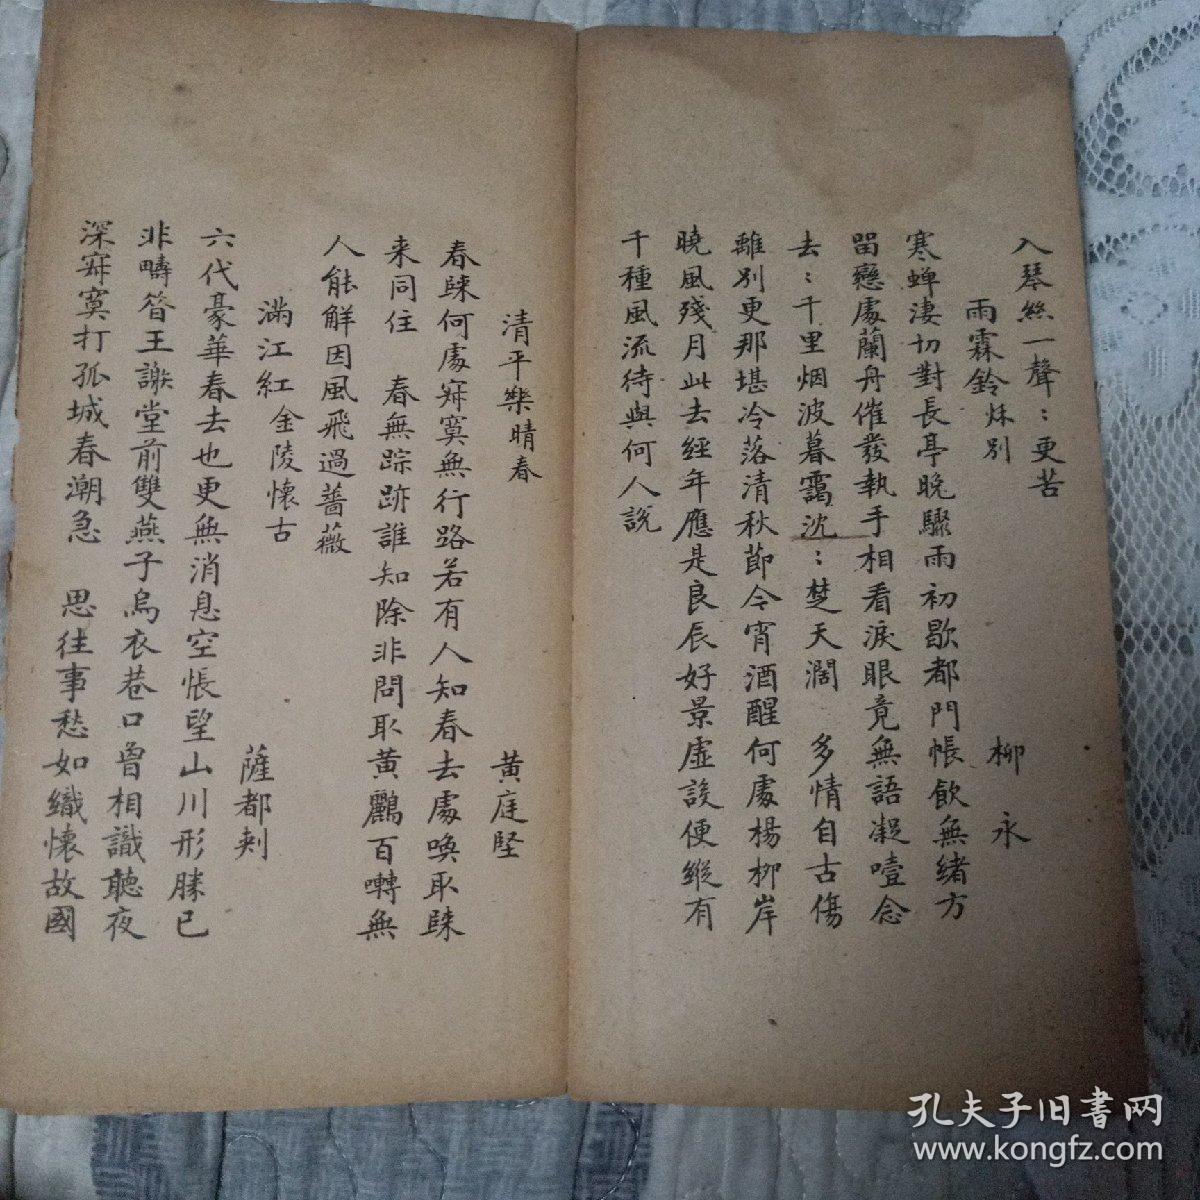 入琴絲一聲：更苦
雨霖鈴 秋別 柳永
寒蟬淒切對長亭晚驟雨初歇都門帳飲無緒方
留戀處蘭舟催發執手相看淚眼竟無語凝噎念
去：千里烟波暮靄沈：楚天濶 多情自古傷
離別更那堪冷落清秋節今宵酒醒何處楊柳岸
曉風殘月此去經年應是良辰好景虛設便縱有
千種風流待與何人說
清平樂 晴春 黃庭堅
春歸何處寂寞無行路若有人知春去處喚取歸
来同住 春無踪跡誰知除非問取黃鸝百囀無
人能解因風飛過薔薇
滿江紅 金陵懷古 薩都剌
六代豪華春去也更無消息空悵望山川形勝已
非疇昔王謝堂前雙燕子烏衣巷口曾相識聽夜
深寂寞打孤城春潮急 思往事愁如織懷故國
孔夫子旧書网
www.kongfz.com